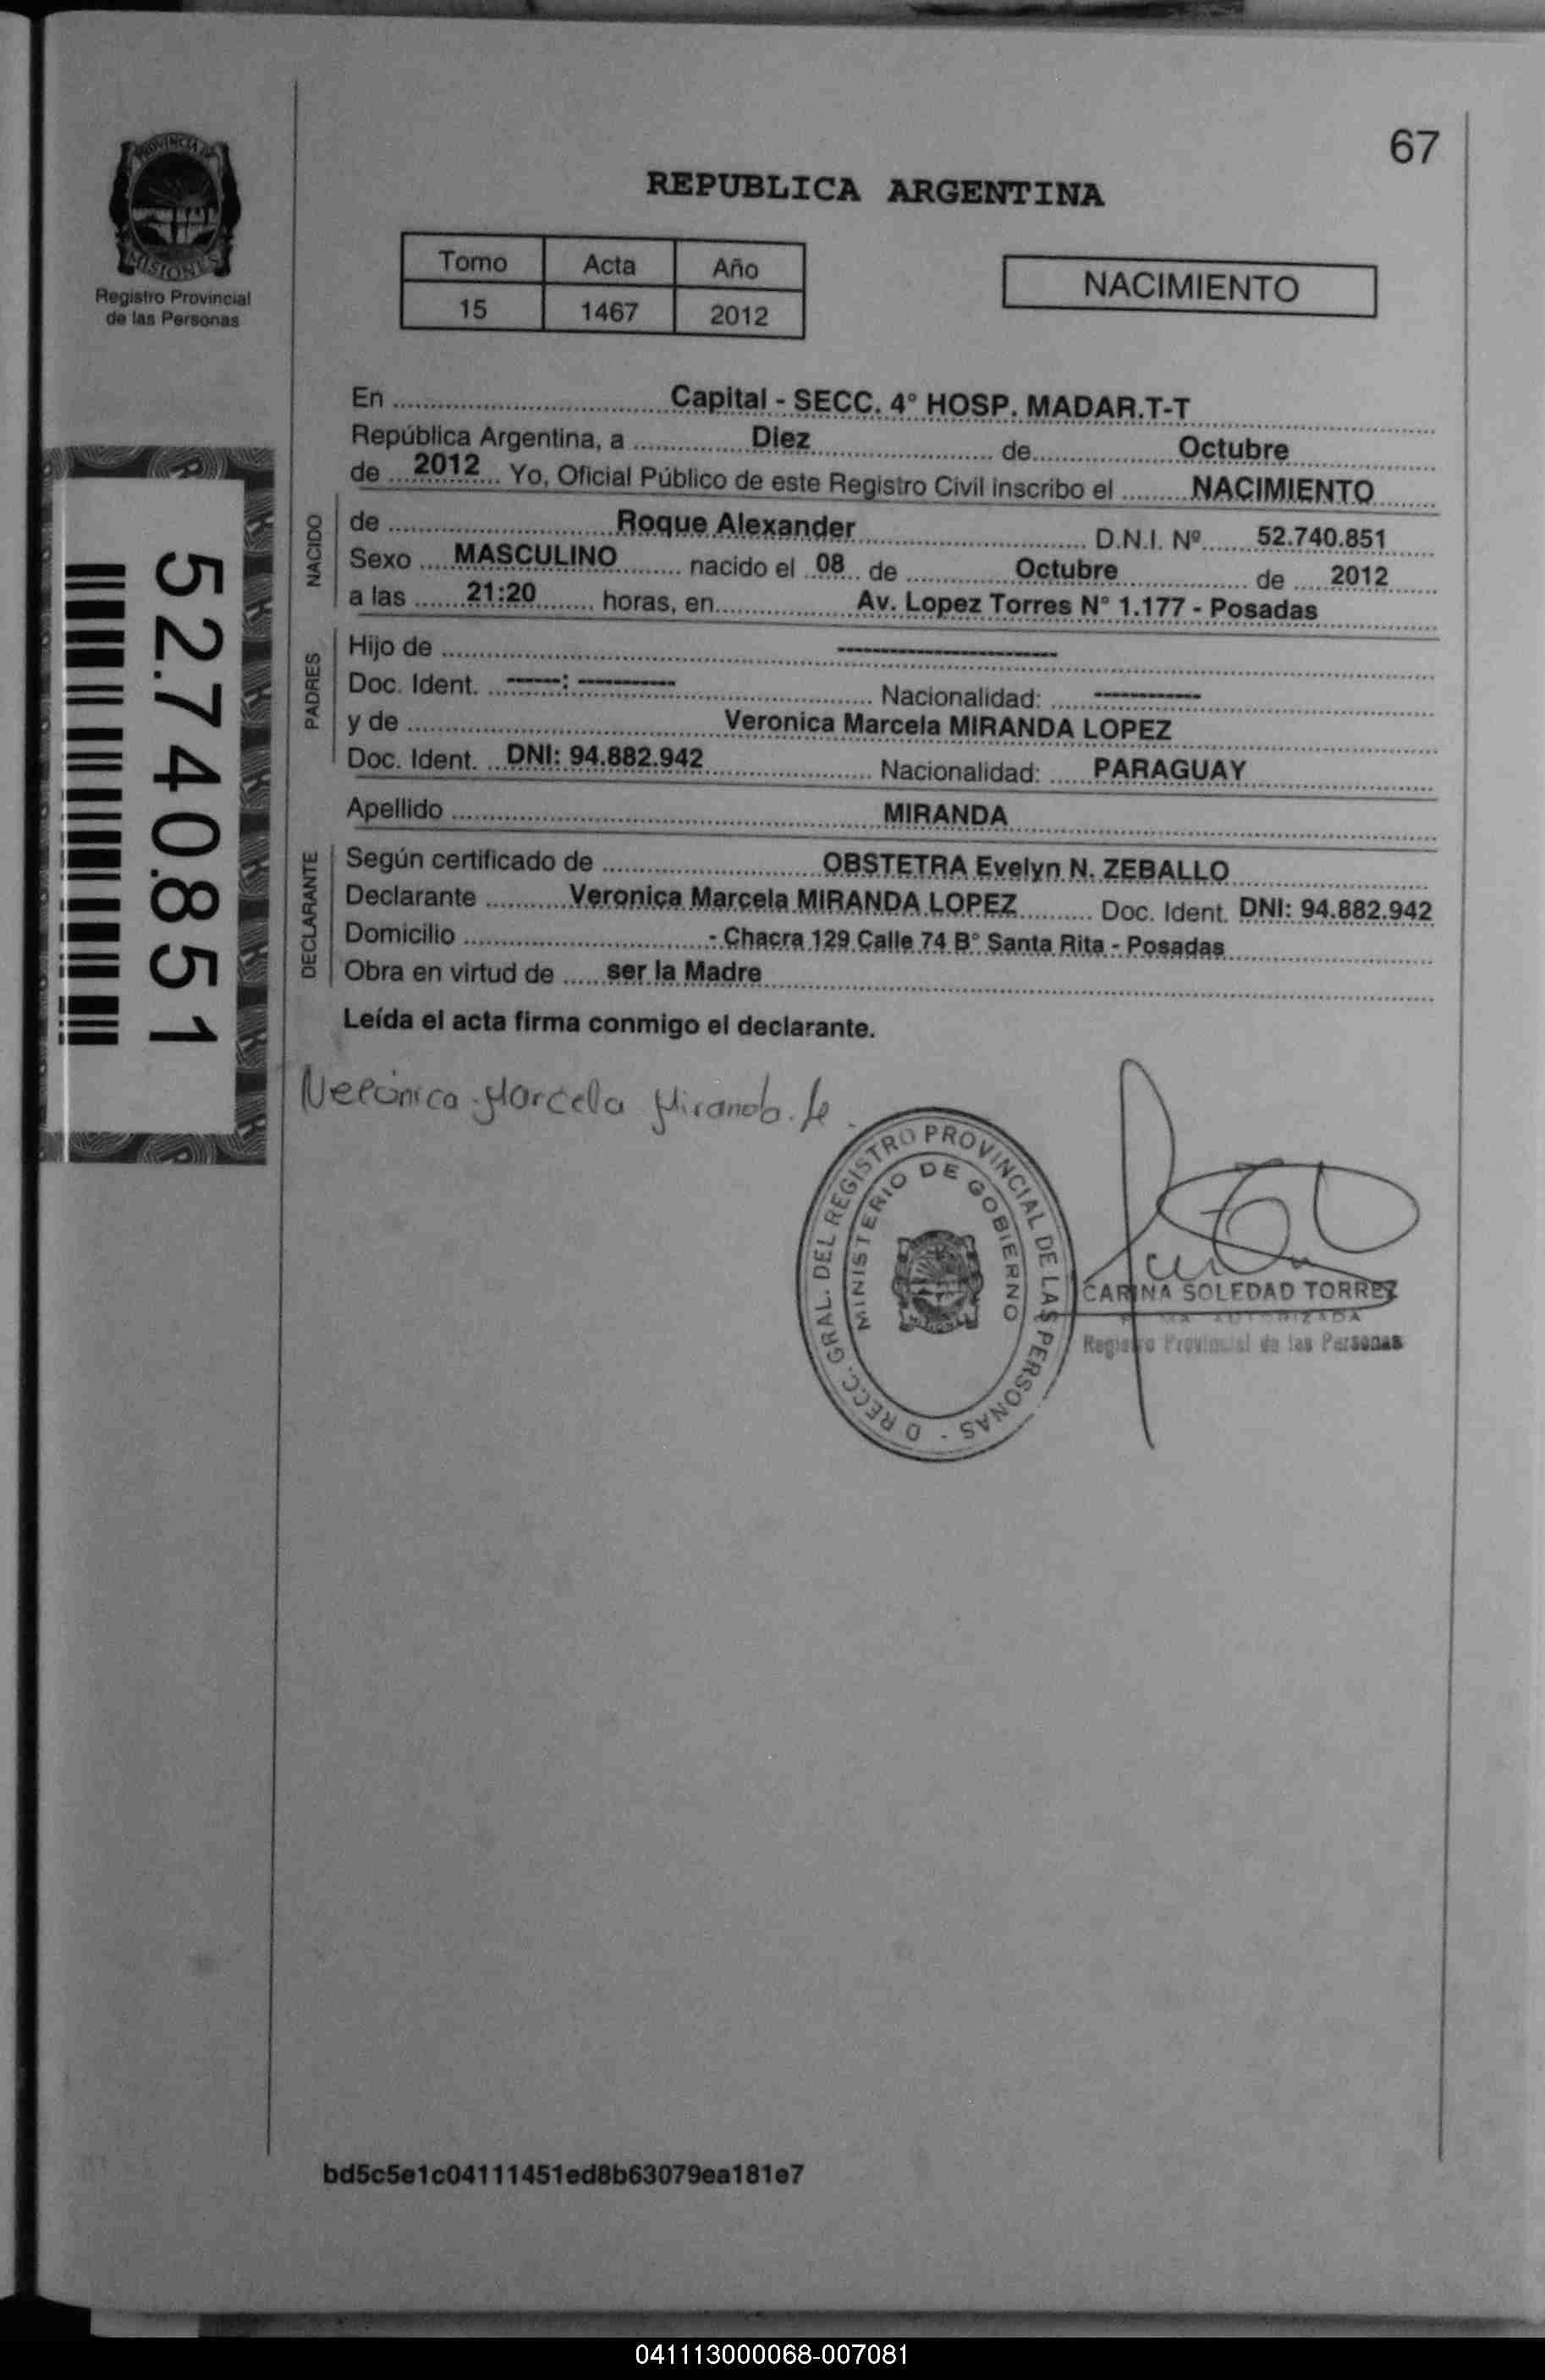 67
REPUBLICA ARGENTINA
PROVINCIA DE
MISIONES
Registro Provincial
de las Personas
Tomo Acta Año
15 1467 2012
NACIMIENTO
En ........ Capital - SECC. 4° HOSP. MADAR.T-T
República Argentina, a ........ Diez ........ de ........ Octubre
de ... 2012 ... Yo, Oficial Público de este Registro Civil inscribo el ........ NACIMIENTO
NACIDO
de ........ Roque Alexander ........ D.N.I. Nº ........ 52.740.851
Sexo .... MASCULINO ........ nacido el .. 08 .. de ........ Octubre ........ de .... 2012
a las ...... 21:20 ....... horas, en ........ Av. Lopez Torres N° 1.177 - Posadas
PADRES
Hijo de ........ --------------------
Doc. Ident. ... -----: --------- ........ Nacionalidad: ........ ----------
y de ........ Veronica Marcela MIRANDA LOPEZ
Doc. Ident. ... DNI: 94.882.942 ........ Nacionalidad: ...... PARAGUAY
Apellido ........ MIRANDA
DECLARANTE
Según certificado de ........ OBSTETRA Evelyn N. ZEBALLO
Declarante ........ Veronica Marcela MIRANDA LOPEZ ........ Doc. Ident. DNI: 94.882.942
Domicilio ........ - Chacra 129 Calle 74 B° Santa Rita - Posadas
Obra en virtud de ..... ser la Madre
Leída el acta firma conmigo el declarante.
52.740.851
Veronica Marcela Miranda. Le
DRECC. GRAL. DEL REGISTRO PROVINCIAL DE LAS PERSONAS -
MINISTERIO DE GOBIERNO
CARINA SOLEDAD TORREZ
Registro Provincial de las Personas
bd5c5e1c04111451ed8b63079ea181e7
041113000068-007081